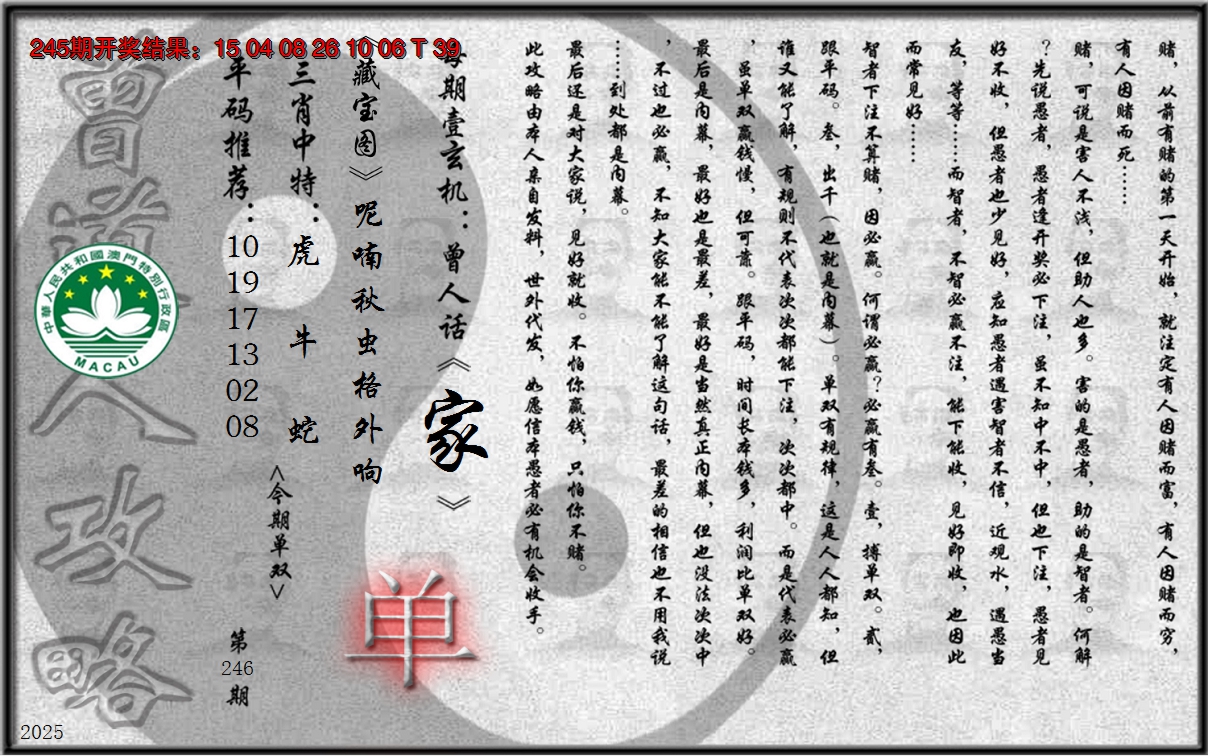 245期开奖结果：15 04 08 26 10 06 T 39
赌，从前有赌的第一天开始，就注定有人因赌而富，有人因赌而穷，
有人因赌而死……
赌，可说是害人不浅，但助人也多。害的是愚者，助的是智者。何解
？先说愚者，愚者逢开奖必下注，虽不知中不中，但也下注，愚者见
好不收，但愚者也少见好，应知愚者遇害智者不信，近观水，遇愚当
友，等等……而智者，不智必赢不注，能下能收，见好即收，也因此
而常见好……
智者下注不算赌，因必赢。何谓必赢？必赢有叁。壹，搏单双。贰，
跟平码。叁，出千（也就是内幕）。单双有规律，这是人人都知，但
谁又能了解，有规则不代表次次都能下注，次次都中。而是代表必赢
，虽单双赢钱慢，但可靠。跟平码，时间长本钱多，利润比单双好。
最后是内幕，最好也是最差，最好是当然真正内幕，但也没法次次中
，不过也必赢，不知大家能不能了解这句话，最差的相信也不用我说
……到处都是内幕。
最后还是对大家说，见好就收。不怕你赢钱，只怕你不赌。
此攻略由本人亲自发料，世外代发，如愿信本愚者必有机会收手。
每期壹玄机：曾人话《家》
《藏宝图》呢喃秋虫格外响
单
三肖中特：虎 牛 蛇
<今期单双>
平码推荐：10 19 17 13 02 08
第246期
曾道人攻略
中華人民共和國澳門特別行政區
MACAU
2025